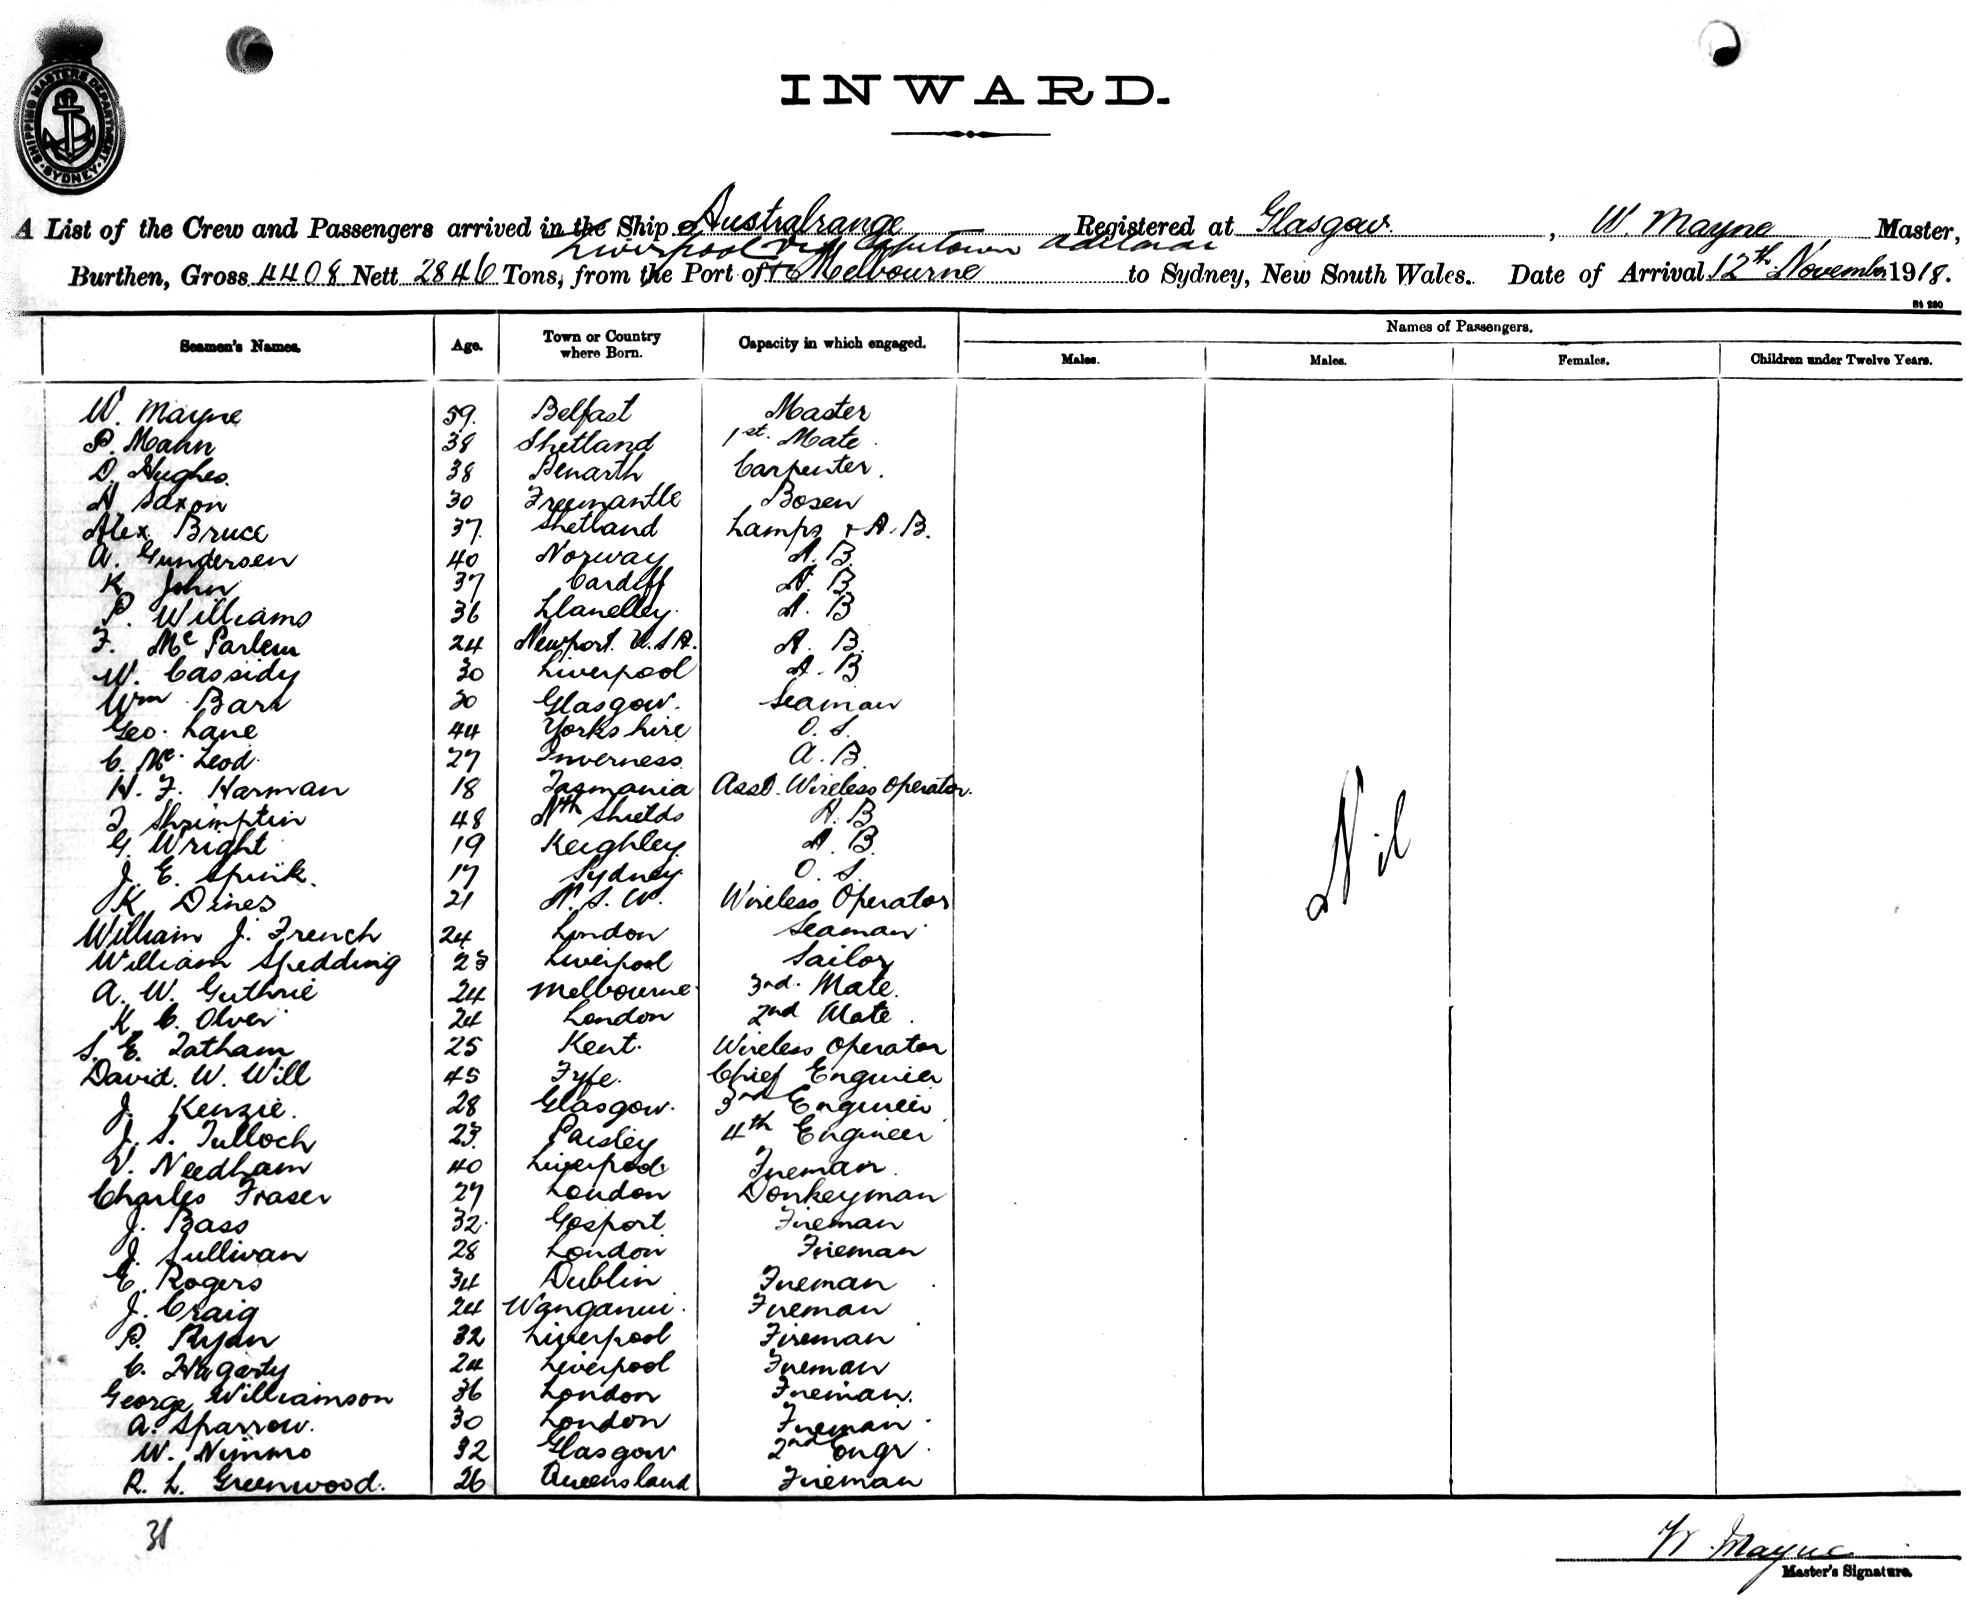 SHIPPING MASTERS DEPARTMENT
SYDNEY
INWARD.
A List of the Crew and Passengers arrived in the Ship Australrange Registered at Glasgow, W. Mayne Master,
Liverpool via Capetown Adelaide
Burthen, Gross 4408 Nett 2846 Tons, from the Port of & Melbourne to Sydney, New South Wales. Date of Arrival 12th November 1918.
Bt 280
Seamen's Names. Age. Town or Country where Born. Capacity in which engaged. Names of Passengers.
Males. Males. Females. Children under Twelve Years.
W. Mayne 59. Belfast Master
P. Mann 38 Shetland 1st. Mate.
D. Hughes. 38 Penarth Carpenter.
A Saxon 30 Freemantle Bosen
Alex Bruce 37. Shetland Lamps + A.B.
A. Gundersen 40 Norway A.B.
K John 37 Cardiff A.B.
P. Williams 36 Llanelley. A.B
F. Mc Parlem 24 Newport. U.S.A. A.B.
W. Cassidy 30 Liverpool A.B
Wm Barr 30 Glasgow. Seaman
Geo. Lane 44 Yorkshire O.S.
C. Mc. Leod. 27 Inverness. A.B.
H. F. Harman 18 Tasmania Asst. Wireless Operator.
T Shrimptin 48 Nth Shields A.B
G. Wright 19 Keighley. A.B.
J. E. Spink. 17 Sydney. O.S.
K Dines 21 N.S.W. Wireless Operator
William J. French 24. London Seaman
William Spedding 23 Liverpool Sailor
A. W. Guthrie 24 Melbourne 3rd. Mate.
K. C. Olver 24 London 2nd Mate.
S. E. Tatham 25 Kent. Wireless Operator
David. W. Will 45 Fyfe. Chief Engineer
J. Kenzie. 28 Glasgow. 3rd Engineer
J. S. Tulloch 23. Paisley 4th Engineer
V. Needham 40 Liverpool Fireman.
Charles Fraser 27 London Donkeyman
J. Bass 32. Gosport Fireman
J. Sullivan 28 London Fireman
E. Rogers 34 Dublin Fireman
J. Craig 24 Wanganui. Fireman
P. Ryan 32 Liverpool Fireman
C. Hagarty 24 Liverpool Fireman
George Williamson 36 London Fireman.
A. Sparrow. 30 London Fireman.
W. Nimmo 32 Glasgow 2nd Engr.
R. L. Greenwood. 26 Queensland Fireman
Nil
38
W. Mayne
Master's Signature.